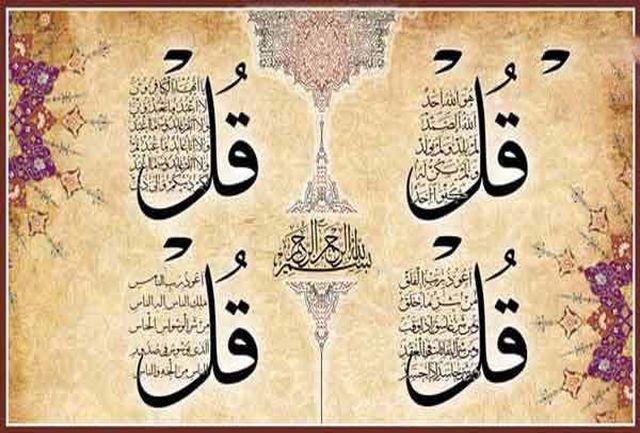 قُلْ
هو الله احد
الله الصمد
لم يلد ولم يولد
ولم يكن له
كفوا احد
قُلْ
يا ايها الكافرون
لا اعبد ما تعبدون
ولا انتم عابدون ما اعبد
ولا انا عابد ما عبدتم
ولا انتم عابدون ما اعبد
لكم دينكم ولي دين
بسم الله الرحمن الرحيم
قُلْ
اعوذ برب الفلق
من شر ما خلق
ومن شر غاسق اذا وقب
ومن شر النفاثات في العقد
ومن شر حاسد اذا حسد
قُلْ
اعوذ برب الناس
ملك الناس اله الناس
من شر الوسواس الخناس
الذي يوسوس في صدور
الناس من الجنة والناس